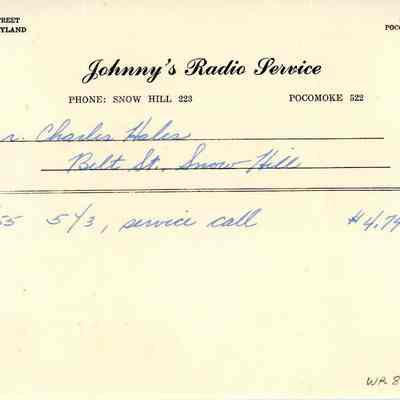 TREET
YLAND
POC
Johnny's Radio Service
PHONE: SNOW HILL 223 POCOMOKE 522
r. Charles Hales
Belt St., Snow Hill
55 5Y3, service call $4.74
WR 8